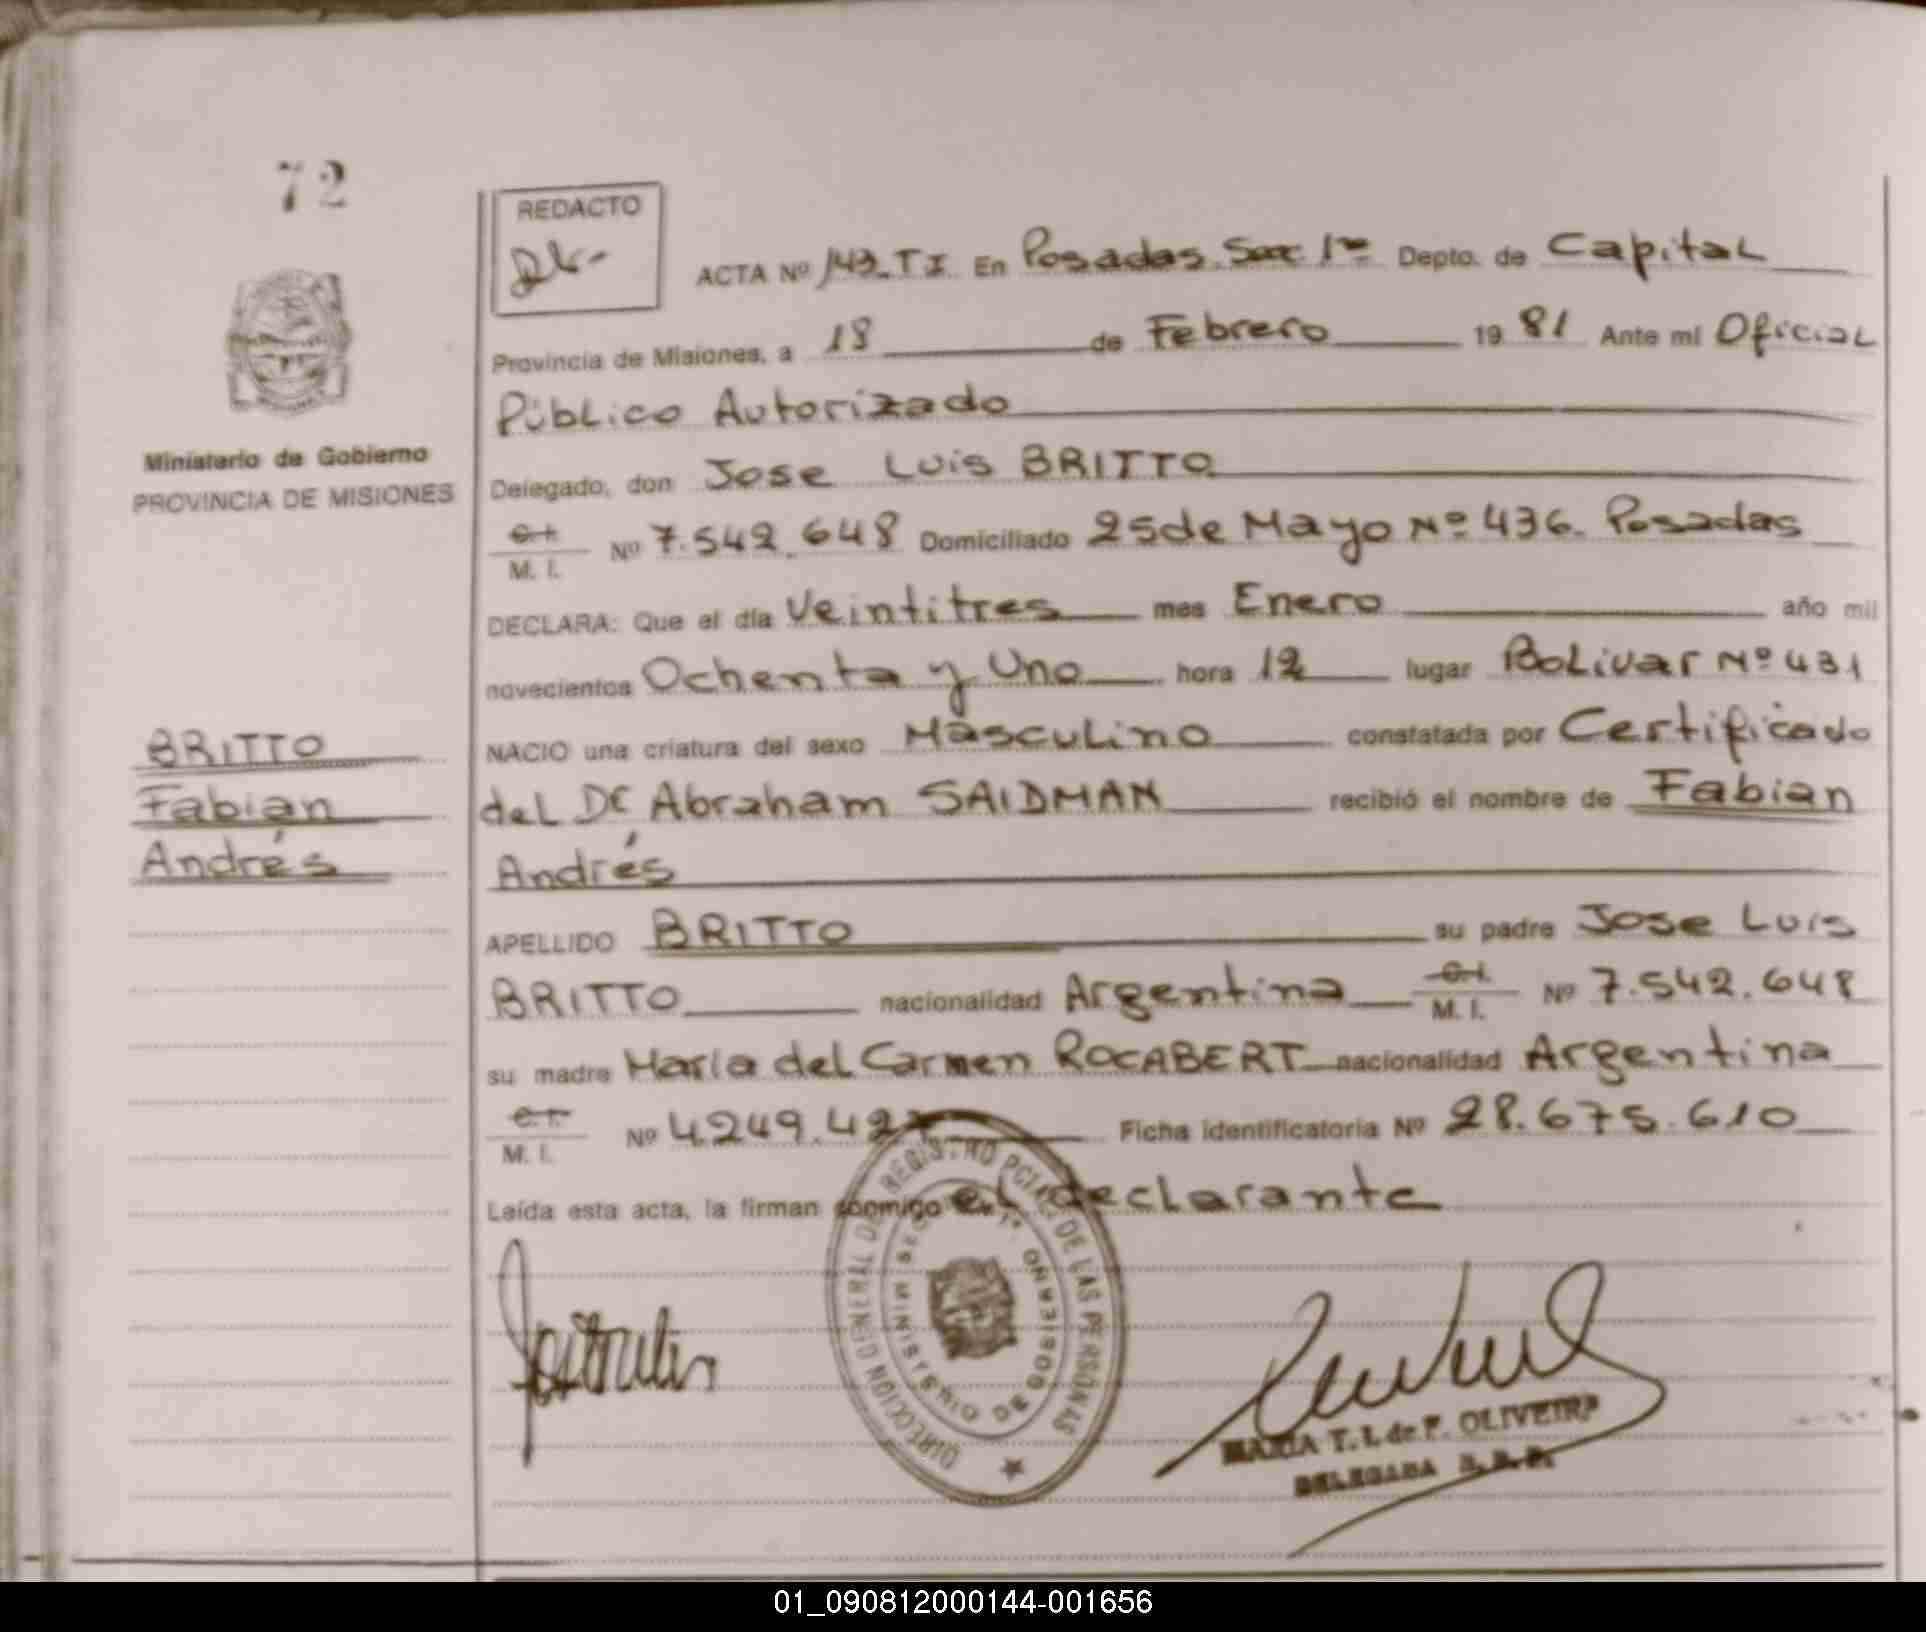 72
REDACTO
ACTA Nº 143-TI En Posadas Sec 1ra Depto. de Capital
Provincia de Misiones, a 18 de Febrero 1981 Ante mí Oficial
Público Autorizado
Ministerio de Gobierno
PROVINCIA DE MISIONES
Delegado, don Jose Luis BRITTO
C.I. M. I. Nº 7.542.648 Domiciliado 25 de Mayo Nº 436. Posadas
DECLARA: Que el día Veintitres mes Enero año mil
novecientos Ochenta y Uno hora 12 lugar Bolivar Nº 431
BRITTO
Fabian
Andrés
NACIO una criatura del sexo Masculino constatada por Certificado
del Dr Abraham SAIDMAN recibió el nombre de Fabian
Andrés
APELLIDO BRITTO su padre Jose Luis
BRITTO nacionalidad Argentina C.I. M. I. Nº 7.542.648
su madre María del Carmen ROCABERT nacionalidad Argentina
C.I. M. I. Nº 4.249.427 Ficha identificatoria Nº 28.675.610
Leída esta acta, la firman conmigo el declarante
DIRECCION GENERAL DEL REGISTRO PCIAL. DE LAS PERSONAS
MINISTERIO DE GOBIERNO
MARIA T. I. de F. OLIVEIRA
DELEGADA R. P. P.
01_090812000144-001656